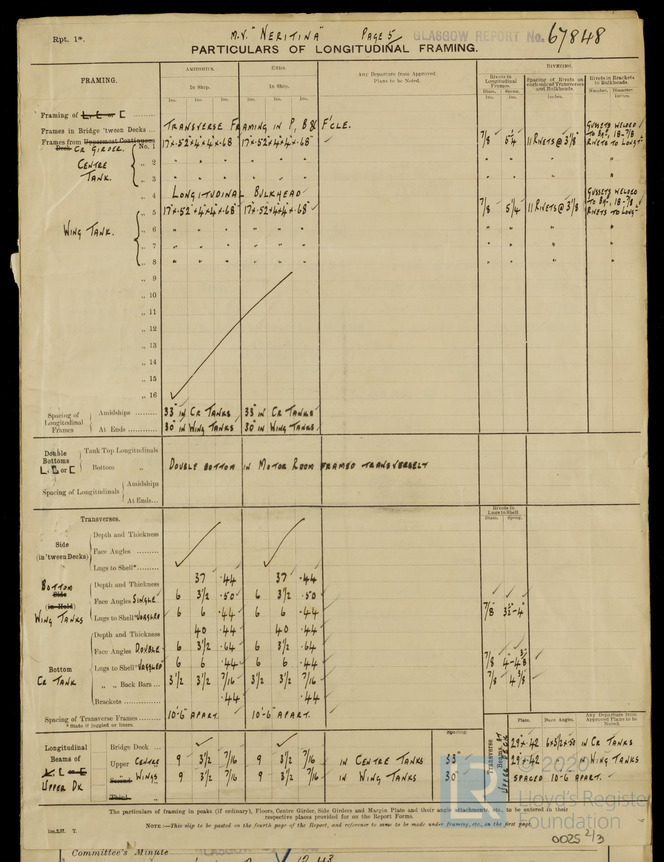 Rpt. 1*.
M.V. "NERITINA" PAGE 5
GLASGOW REPORT No. 67848
PARTICULARS OF LONGITUDINAL FRAMING.
FRAMING.
AMIDSHIPS. ENDS.
In Ship. In Ship.
Any Departure from Approved Plans to be Noted.
RIVETING.
Rivets in Longitudinal Frames.
Spacing of Rivets on each side of Transverses and Bulkheads.
Rivets in Brackets to Bulkheads.
Ins. Ins. Ins. Ins. Ins. Ins.
Diam. Spcng. Inches. Number. Diameter.
Framing of L, E or C
Frames in Bridge 'tween Decks ... TRANSVERSE FRAMING IN P, B & F'CLE.
Frames from Uppermost Continuous Deck No. 1 17"×·52"×4"×4"×·68" 17"×·52"×4"×4"×·68" 7/8 5¼ 11 RIVETS @ 3⅛
GUSSETS WELDED TO BHD, 18-7/8 RIVETS TO LONGL
CR GIRDER.
CENTRE TANK.
„ 2 " " " " " "
„ 3 " " " " " "
„ 4 LONGITUDINAL BULKHEAD
„ 5 17"×·52"×4"×4"×·68" 17"×·52"×4"×4"×·68" 7/8 5¼ 11 RIVETS @ 3⅛
GUSSETS WELDED TO BHD, 18-7/8 RIVETS TO LONGL
WING TANK.
„ 6 " " " " " "
„ 7 " " " " " "
„ 8 " " " " " "
„ 9
„ 10
„ 11
„ 12
„ 13
„ 14
„ 15
„ 16
Spacing of Longitudinal Frames
Amidships 33" IN CR TANKS 33" IN CR TANKS
At Ends 30" IN WING TANKS 30" IN WING TANKS
Double Bottoms L, E or C
Tank Top Longitudinals
Bottom „ DOUBLE BOTTOM IN MOTOR ROOM FRAMED TRANSVERSELY
Spacing of Longitudinals
Amidships
At Ends...
Transverses.
Rivets in Lugs to Shell.
Diam. Spcng.
Side (in 'tween Decks)
Depth and Thickness
Face Angles
Lugs to Shell*
BOTTOM Side (in Hold) WING TANKS
Depth and Thickness 37 ·44 37 ·44
Face Angles SINGLE 6 3½ ·50 6 3½ ·50
Lugs to Shell* JOGGLED 6 6 ·44 6 6 ·44 7/8" 3½"-4"
Bottom CR TANK
Depth and Thickness 40 ·44 40 ·44
Face Angles DOUBLE 6 3½ ·64 6 3½ ·64
Lugs to Shell* JOGGLED 6 6 ·44 6 6 ·44 7/8
„ „ Back Bars 3½ 3½ 7/16 3½ 3½ 7/16 7/8 4⅜
Brackets ·44 ·44
Spacing of Transverse Frames 10'-6" APART. 10'-6" APART.
*State if joggled or liners.
Spacing.
Plate. Face Angles. Any Departure from Approved Plans to be Noted.
Longitudinal Beams of L, E or C UPPER DK
TRANSVERSE BEAMS AT UPPER DECK
Bridge Deck
Upper CENTRE 9 3½ 7/16 9 3½ 7/16 IN CENTRE TANKS 33" 29"×·42 6×3½×·50 IN CR TANKS
Second WINGS 9 3½ 7/16 9 3½ 7/16 IN WING TANKS 30" 29"×·42 " IN WING TANKS
Third „
SPACED 10'-6" APART.
The particulars of framing in peaks (if ordinary), Floors, Centre Girder, Side Girders and Margin Plate and their angle attachments, etc., to be entered in their respective places provided for on the Report Forms.
NOTE :—This slip to be pasted on the fourth page of the Report, and reference to same to be made under framing, etc., on the first page.
© 2020
LR
Lloyd's Register Foundation
0025 2/3
Committee's Minute